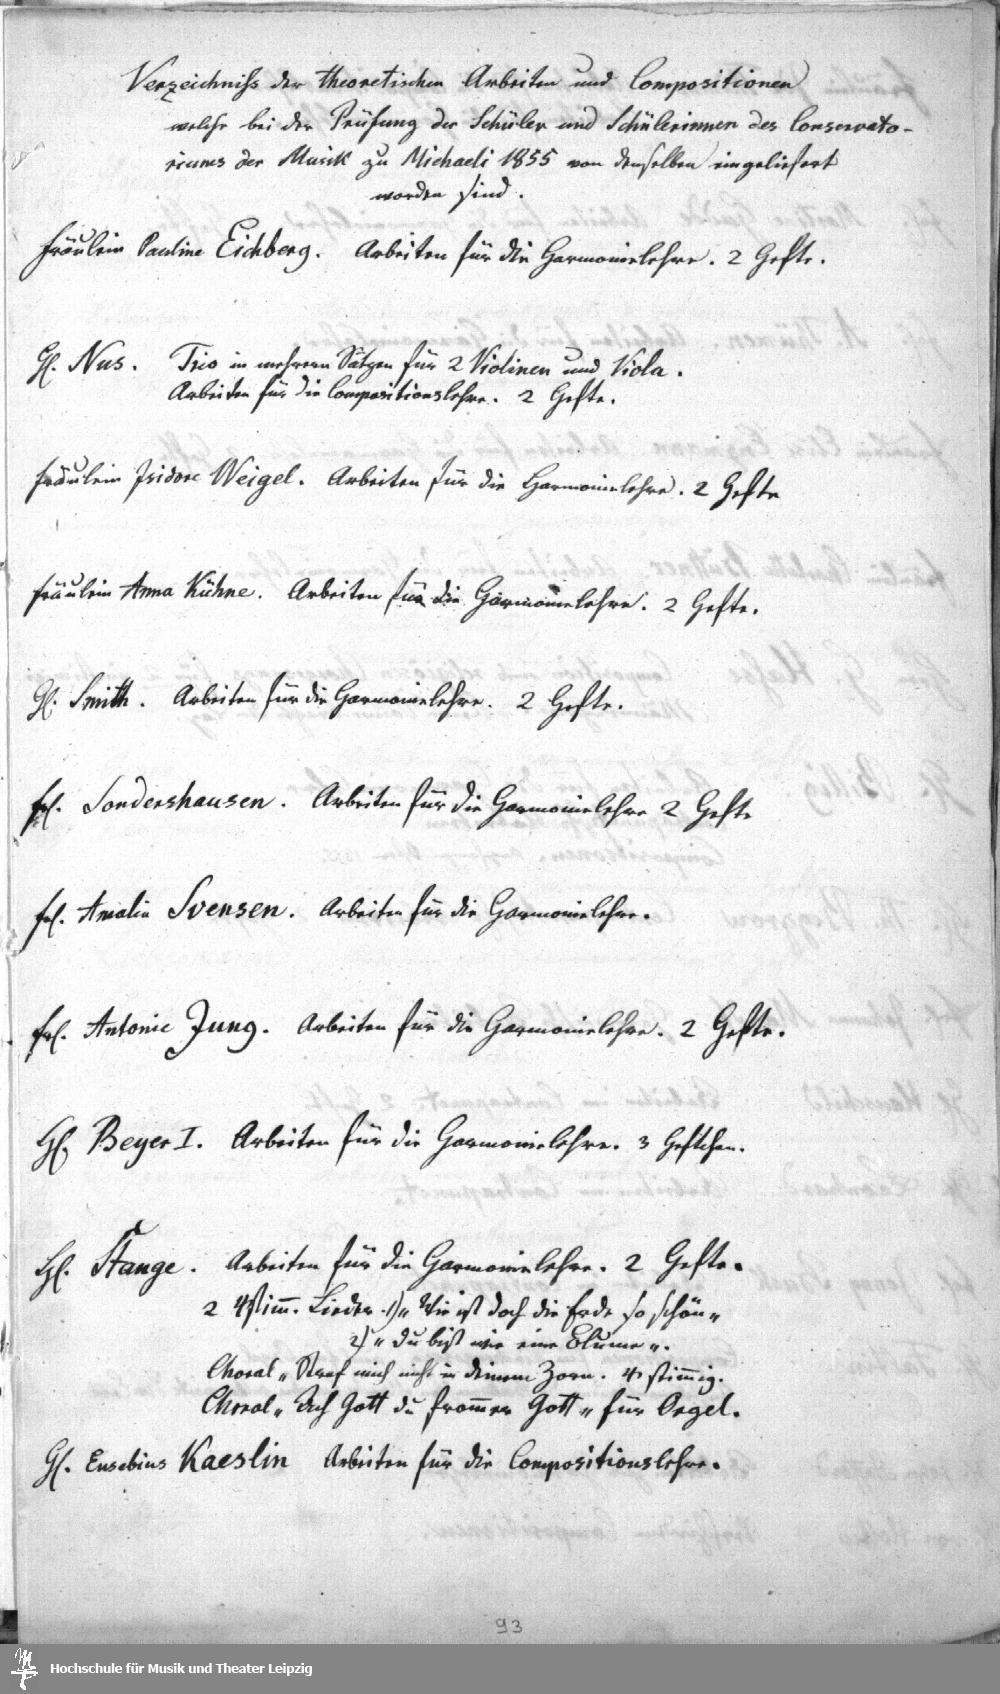 Verzeichniß der theoretischen Arbeiten und Compositionen
welche bei der Prüfung der Schüler und Schülerinnen des Conservato-
riums der Musik zu Michaeli 1855 von denselben eingeliefert
worden sind.
Fräulein Pauline Eichberg. Arbeiten für die Harmonielehre. 2 Hefte.
H. Nus. Trio in mehrern Sätzen für 2 Violinen und Viola.
Arbeiten für die Compositionslehre. 2 Hefte.
Fräulein Isidore Weigel. Arbeiten für die Harmonielehre. 2 Hefte
Fräulein Anna Kühne. Arbeiten für die Harmonielehre. 2 Hefte.
H. Smith. Arbeiten für die Harmonielehre. 2 Hefte.
Frl. Sondershausen. Arbeiten für die Harmonielehre 2 Hefte
Frl. Amalie Svensen. Arbeiten für die Harmonielehre.
Frl. Antonie Jung. Arbeiten für die Harmonielehre. 2 Hefte.
H. Beyer I. Arbeiten für die Harmonielehre. 3 Heftchen.
H. Stange. Arbeiten für die Harmonielehre. 2 Hefte.
2 4stimm. Lieder. 1) „Wie ist doch die Erde so schön„
2) „du bist wie eine Blume„.
Choral „Straf mich nicht in deinem Zorn. 4stimmig.
Choral „Ach Gott du frommer Gott„ für Orgel.
H. Eusebius Kaeslin Arbeiten für die Compositionslehre.
93
Hochschule für Musik und Theater Leipzig